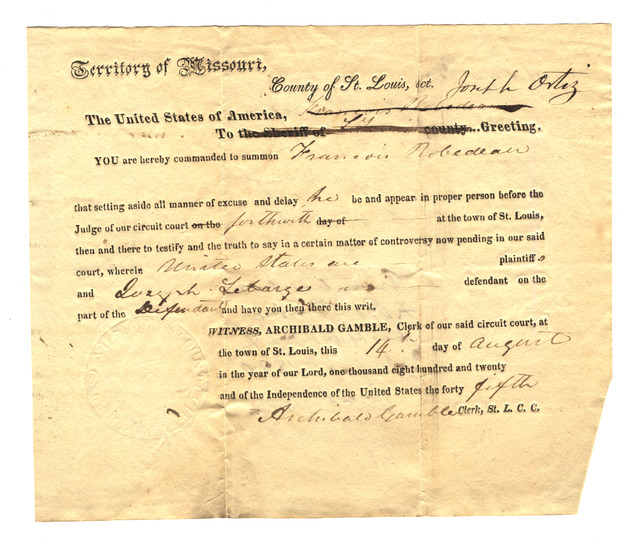 Territory of Missouri,
County of St. Louis, sct. Joseph Ortiz
The United States of America,
To the Sheriff of county... Greeting.
YOU are hereby commanded to summon Francois Robedeau
that setting aside all manner of excuse and delay he be and appear in proper person before the
Judge of our circuit court on the forthwith day of at the town of St. Louis,
then and there to testify and the truth to say in a certain matter of controversy now pending in our said
court, wherein United States are plaintiffs
and Joseph Lebarge is defendant on the
part of the Defendant and have you then there this writ.
WITNESS, ARCHIBALD GAMBLE, Clerk of our said circuit court, at
the town of St. Louis, this 14th day of August
in the year of our Lord, one thousand eight hundred and twenty
and of the Independence of the United States the forty fifth
Archibald Gamble Clerk, St. L. C. C.